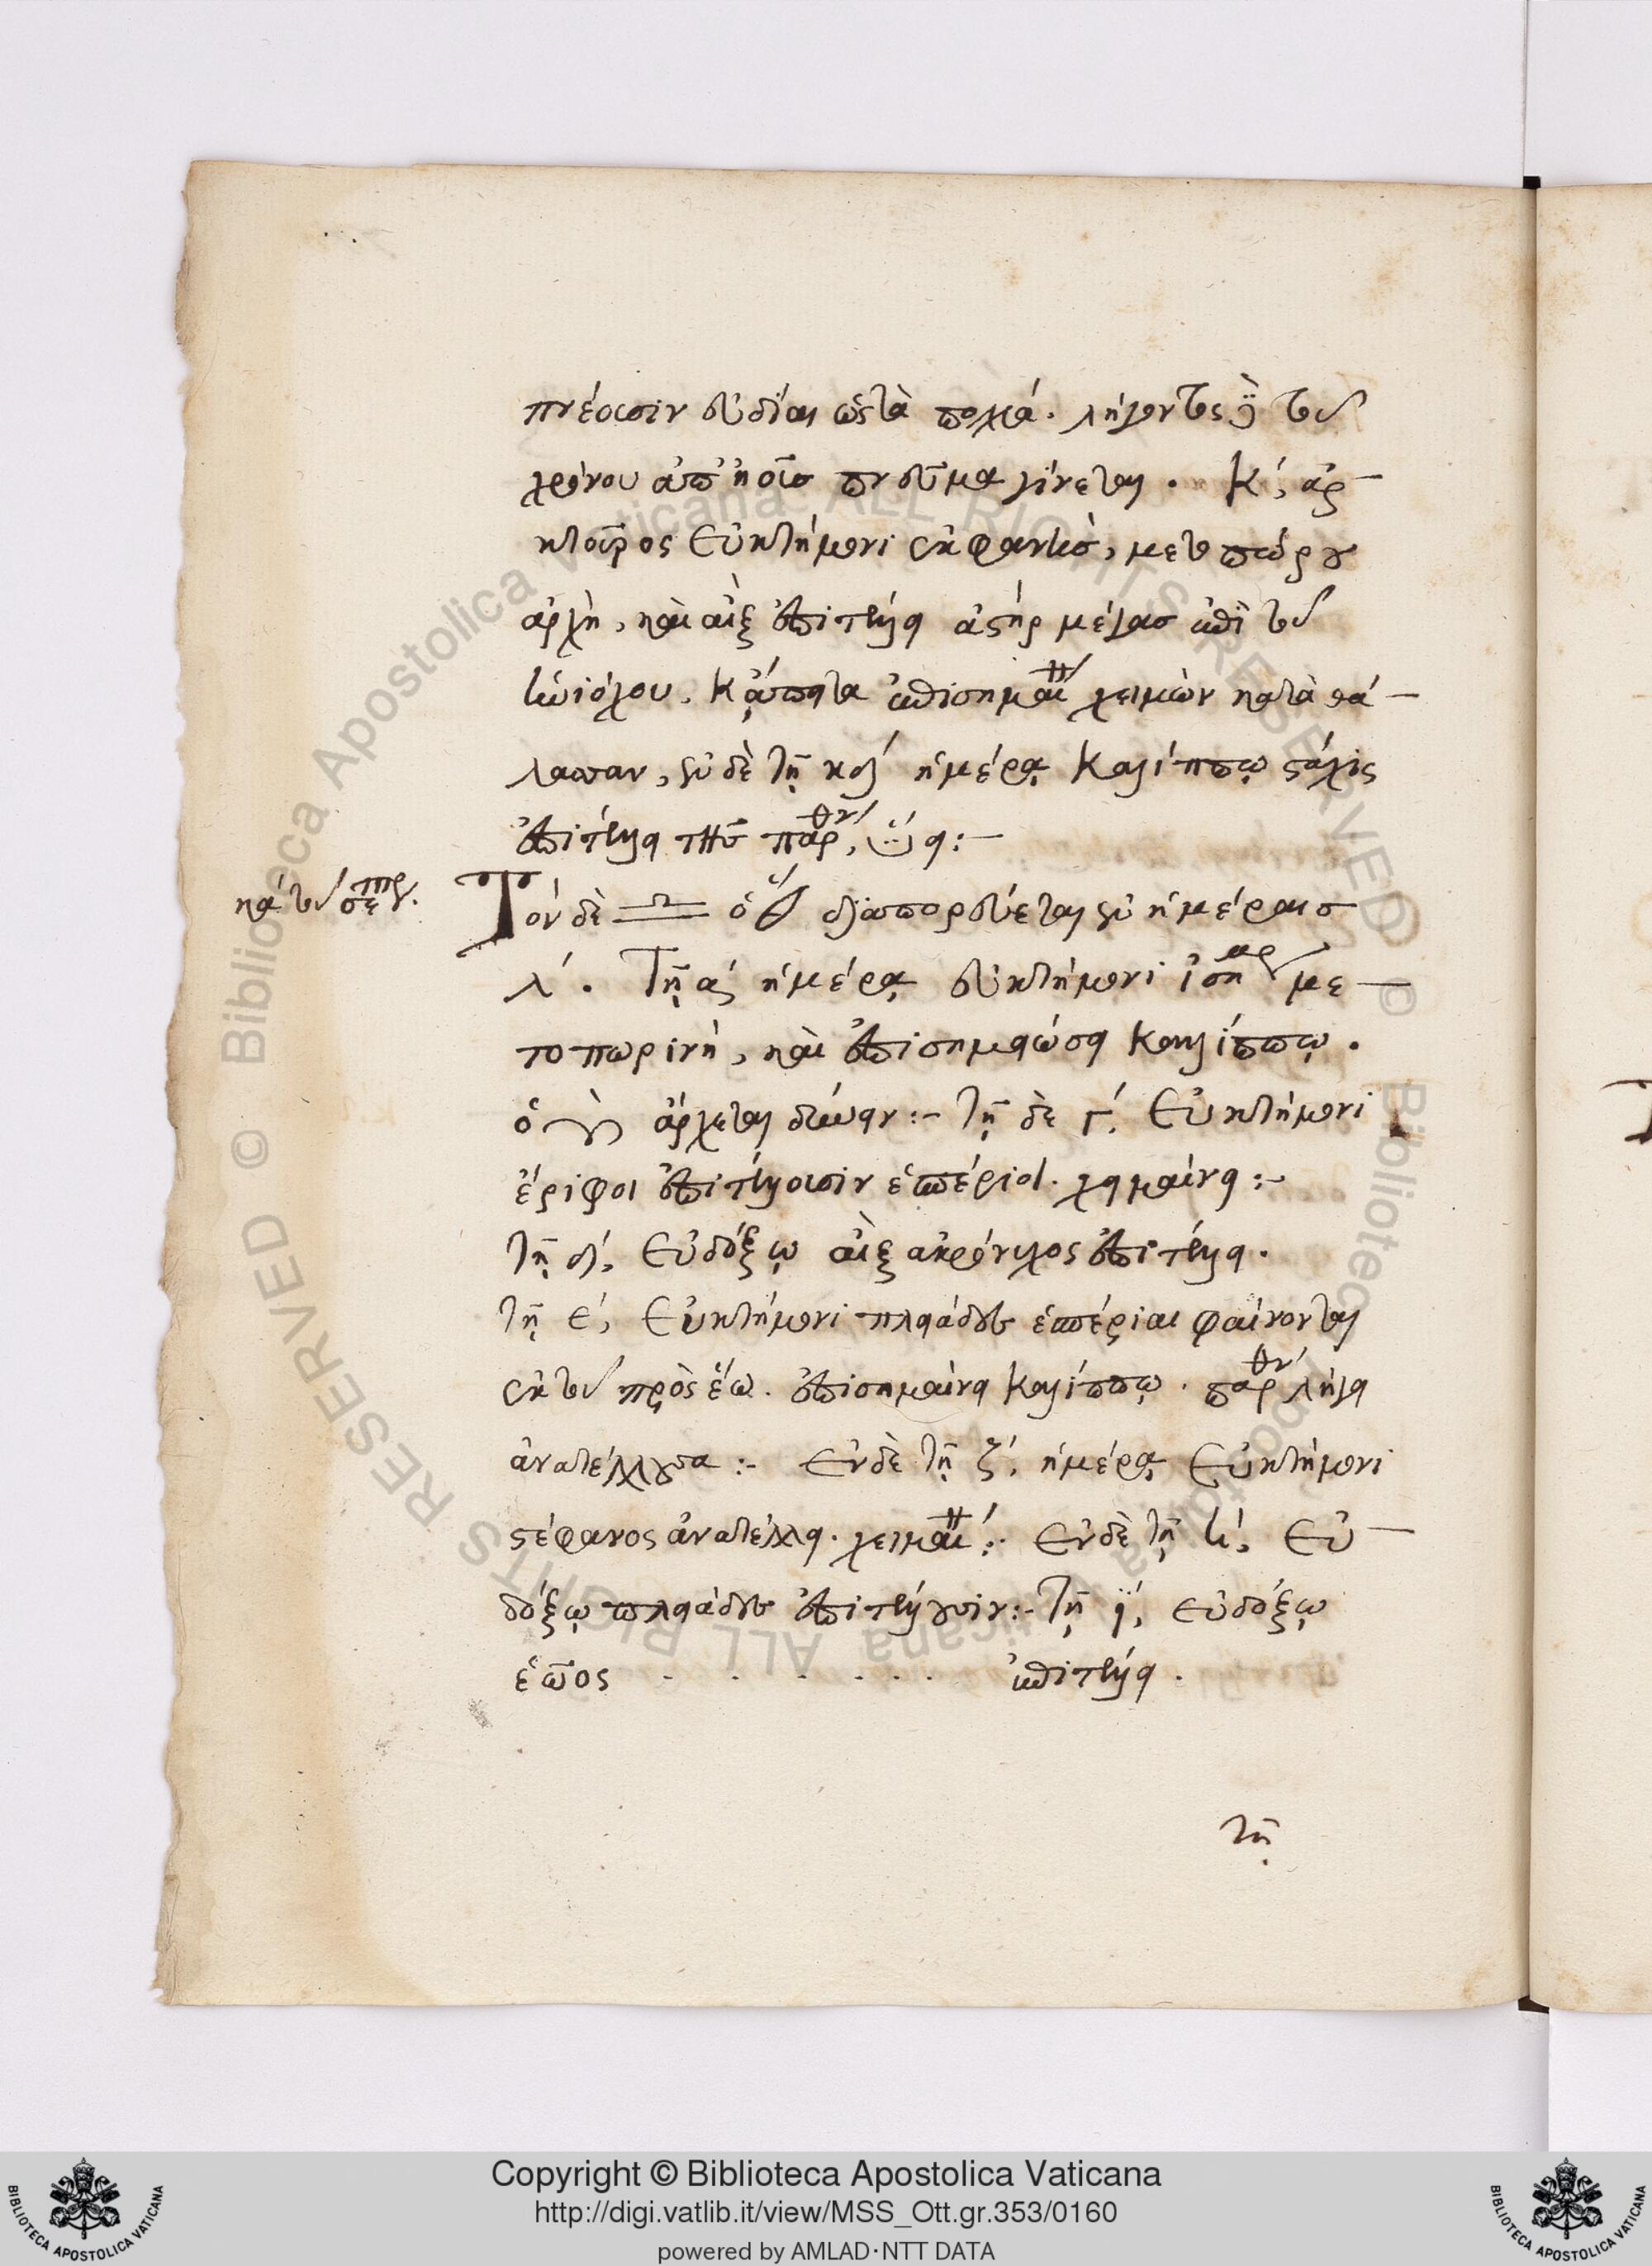 πνέουσιν εὐδίαι ὡς τὰ πολλά. λήγοντος δὲ τοῦ
χρόνου ἀπ' ἠοῦς πνεῦμα γίνεται. Κ, ἀρ-
κτοῦρος Εὐκτήμονι ἐκφανὴς, μετοπώρου
ἀρχὴ, καὶ αἲξ ἐπιτέλλει ἀστὴρ μέγας ἐπὶ τοῦ
ἡνιόχου. Κἄπειτα ἐπισημαί χειμὼν κατὰ θά-
λασσαν, ἐν δὲ τῇ κδ ἡμέρᾳ Καλίππῳ στάχυς
ἐπιτέλλει τῆς παρθν,
κατ τοῦ σεπτρ.
Τὸν δὲ ♎ ὁ διαπορεύεται ἐν ἡμέραις
λ. Τῇ α ἡμέρᾳ εὐκτήμονι ἰσημερ με-
τοπωρινή, καὶ ἐπισημαίνει Καλίππῳ.
ὁ ♈ ἄρχεται δύνειν :- τῇ δὲ γ, Εὐκτήμονι
ἔριφοι ἐπιτέλλουσιν ἑσπέριοι. χειμαίνει :-
τῇ δ, Εὐδόξῳ αἲξ ἀκρόνυχος ἐπιτέλλει.
τῇ ε, Εὐκτήμονι πλειάδες ἑσπέριαι φαίνονται
ἐκ τοῦ πρὸς ἕω. ἐπισημαίνει Καλίππῳ. παρθν λήγει
ἀνατέλλουσα :- Ἐν δὲ τῇ ζ, ἡμέρᾳ Εὐκτήμονι
στέφανος ἀνατέλλει. χειμαί :- Ἐν δὲ τῇ η, Εὐ-
δόξῳ πλειάδες ἐπιτέλλουσιν :- Τῇ ι, εὐδόξῳ
ἑῷος . . . . . . ἐπιτέλλει.
τῇ
Copyright © Biblioteca Apostolica Vaticana
http://digi.vatlib.it/view/MSS_Ott.gr.353/0160
powered by AMLAD·NTT DATA